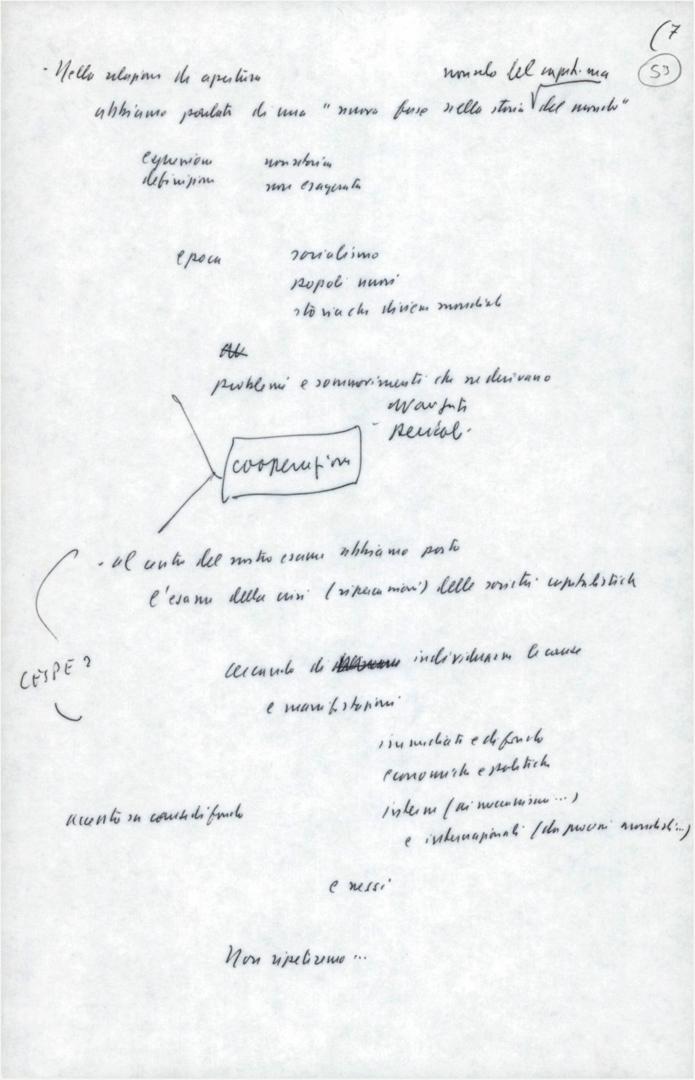 (7
53
- Nella relazione di apertura non solo del capitalismo
abbiamo parlato di una "nuova fase nella storia del mondo"
espressione non retorica
definizione non esagerata
epoca socialismo
popoli nuovi
storia che diviene mondiale
problemi e sommovimenti che ne derivano
avanzate
- pericoli
cooperazione
- al centro del nostro esame abbiamo posto
l'esame della crisi (ripercussioni) delle società capitalistiche
CESPE?
cercando di individuarne le cause
e manifestazioni
immediate e di fondo
economiche e politiche
accento su cause di fondo interne (ai meccanismi...)
e internazionali (da processi mondiali...)
e nessi
Non ripeteremo...